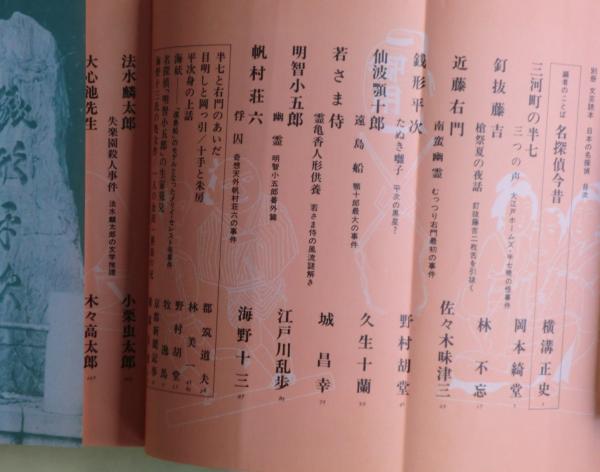 別冊 文芸読本 日本の名探偵 目次
編者のことば 名探偵今昔 横溝正史
三河町の半七 岡本綺堂
三つの声 大江戸ホームズ・半七晩の怪事件
釘抜藤吉 林不忘
槍祭夏の夜話 釘抜藤吉二枚舌を引抜く
近藤右門 佐々木味津三
南蛮幽霊 むっつり右門最初の事件
銭形平次 野村胡堂
たぬき囃子 平次の黒星?
仙波顎十郎 久生十蘭
遠島船 顎十郎最大の事件
若さま侍 城昌幸
霊亀香人形供養 若さま侍の風流謎解き
明智小五郎 江戸川乱歩
幽霊 明智小五郎番外篇
帆村荘六 海野十三
俘囚 奇想天外帆村荘六の事件
半七と右門のあいだ 都筑道夫
目明しと岡っ引/十手と朱房 林美一
平次身の上話 野村胡堂
海砥 牧逸馬
名探偵「明智小五郎」の生家発見 京都新聞記事
法水麟太郎 小栗虫太郎
失楽園殺人事件 法水麟太郎の文学推理
大心池先生 木々高太郎
銭形平次